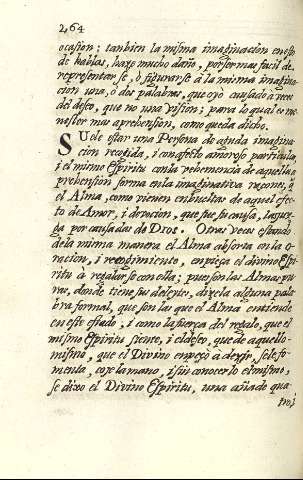 264
ocasion; tanbien la misma imaginacion en esto
de hablas, haze mucho daño, por ser mas facil de
representarse, ò figurarse à la misma imagina
cion una, ò dos palabras, que oyò cuisado à veces
del deseo, que no una vision; para lo qual es me
nester mas aprehension, como queda dicho.
SUele estar una Persona de aguda imagina
cion recogida, i con afecto amoroso particular
i el mismo Espiritu con la vehemencia de aquella a
prehension forma en la imaginativa raçones, q
el Alma, como vienen enbueltas de aquel efec
to de Amor, i devocion, que fue su causa, las juz
ga por causadas de Dios. Otras veces estando
de la misma manera el Alma absorta en la o
racion, i rendimiento, enpieça el divino Espi
ritu à regalarse con ella; pues son las Almas pu
ras, donde tiene sus deleytes, dicela alguna pala
bra formal, que son las que el Alma entiende
en este estado, i como la fuerça del regalo, que el
mismo Espiritu siente, i el deseo, que de aquello
mismo, que el Divino enpeçò à decir, se le fo
menta, coje la mano, i sin conocerlo el mismo,
se dixo el Divino Espiritu, una añade qua
tro,